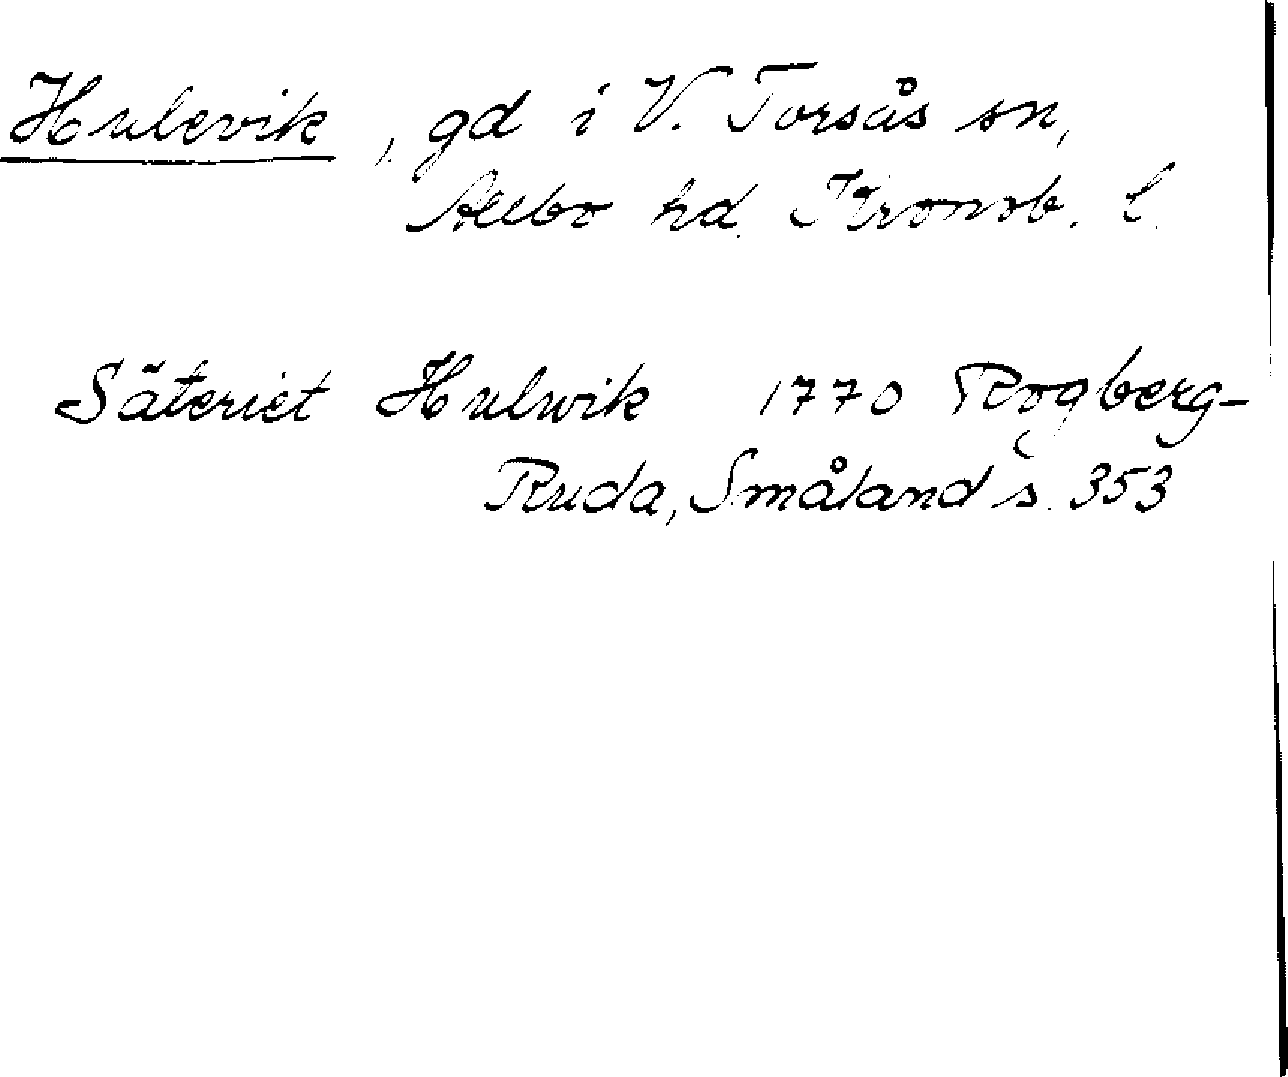 Hulevik, gd i V. Torsås sn,
Allbo hd. Kronob. l.
Säteriet Hulwik 1770 Rogberg-
Ruda, Småland s. 353